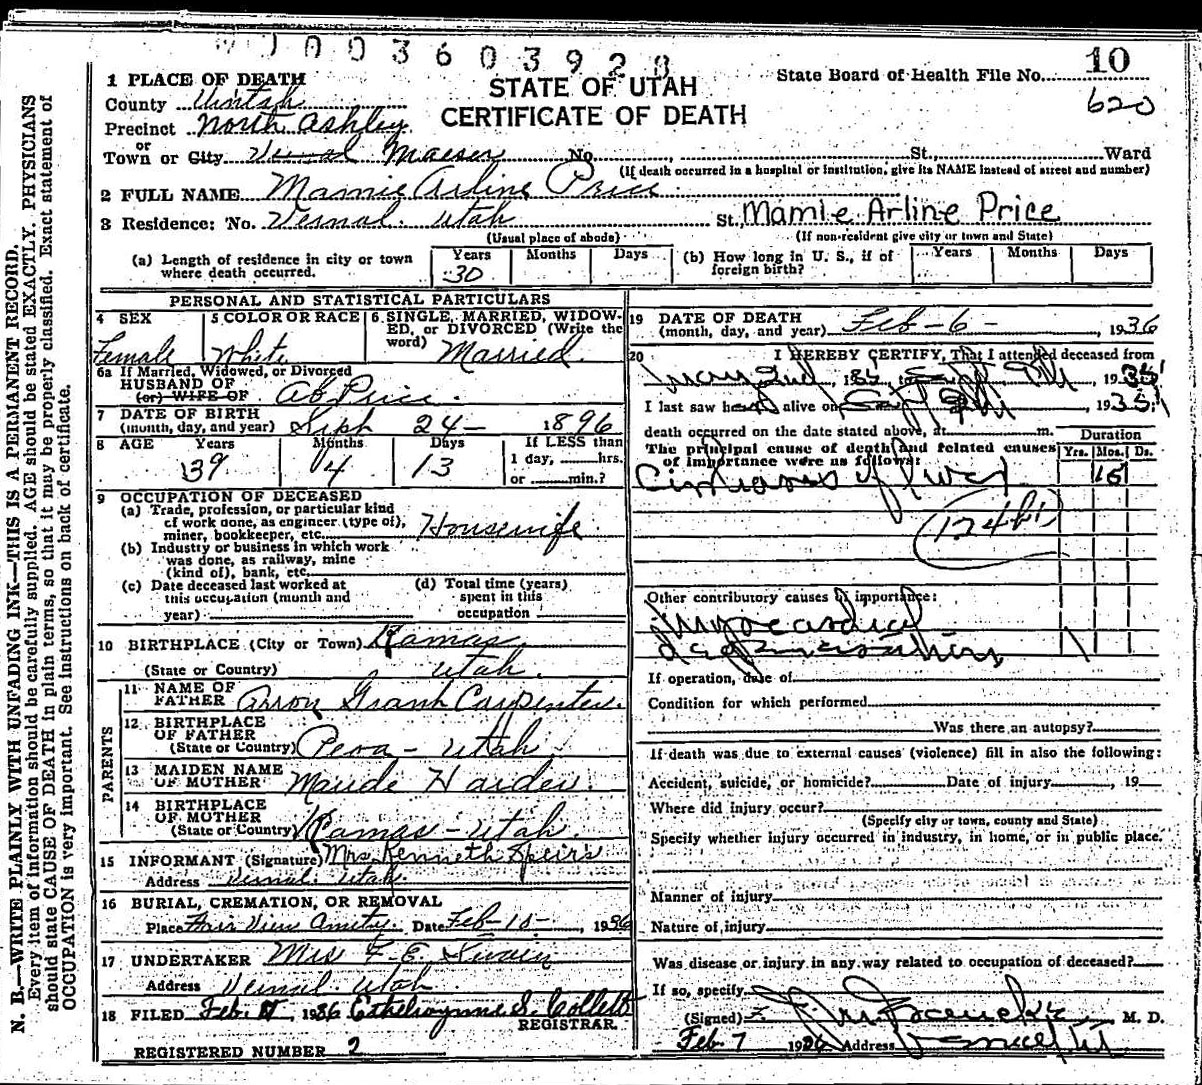 0 0 3 6 0 3 9 2 8
1 PLACE OF DEATH
STATE OF UTAH
CERTIFICATE OF DEATH
State Board of Health File No. 10
620
County Uintah
Precinct North Ashley
or
Town or City Vernal Maeser No. St., Ward
(If death occurred in a hospital or institution, give its NAME instead of street and number)
2 FULL NAME Mamie Arline Price
3 Residence: No. Vernal. Utah St. Mamie Arline Price
(Usual place of abode) (If non-resident give city or town and State)
(a) Length of residence in city or town where death occurred. Years 30 Months Days
(b) How long in U. S., if of foreign birth? Years Months Days
PERSONAL AND STATISTICAL PARTICULARS
4 SEX Female
5 COLOR OR RACE White
6 SINGLE, MARRIED, WIDOWED, or DIVORCED (Write the word) Married.
6a If Married, Widowed, or Divorced
HUSBAND OF
(or) WIFE OF Ab Price.
7 DATE OF BIRTH
(month, day, and year) Sept 24- 1896
8 AGE Years 39 Months 4 Days 13 If LESS than 1 day, hrs. or min.?
9 OCCUPATION OF DECEASED
(a) Trade, profession, or particular kind
of work done, as engineer (type of),
miner, bookkeeper, etc. Housewife
(b) Industry or business in which work
was done, as railway, mine
(kind of), bank, etc.
(c) Date deceased last worked at
this occupation (month and
year)
(d) Total time (years)
spent in this
occupation
10 BIRTHPLACE (City or Town) Kamas
(State or Country) Utah.
PARENTS
11 NAME OF
FATHER Arron Grant Carpenter.
12 BIRTHPLACE
OF FATHER
(State or Country) Peoa - Utah
13 MAIDEN NAME
OF MOTHER Maude Harder.
14 BIRTHPLACE
OF MOTHER
(State or Country) Kamas - Utah.
15 INFORMANT (Signature) Mrs Kenneth Speirs
Address Vernal. Utah
16 BURIAL, CREMATION, OR REMOVAL
Place Fair View Date Feb-10-, 1936
17 UNDERTAKER Mrs F. E. Swain
Address Vernal. Utah
18 FILED Feb. 1936 Ethelwynne S. Collett
REGISTRAR.
REGISTERED NUMBER 2
19 DATE OF DEATH
(month, day, and year) Feb-6-, 1936
20 I HEREBY CERTIFY, That I attended deceased from
May 2nd, 1935 to Sept 9th 1935
I last saw her alive on Sept 9th, 1935.
death occurred on the date stated above, at m.
The principal cause of death and related causes
of importance were as follows:
Duration
Yrs. Mos. Ds.
Cirrhosis of liver 15
(124b1)
Other contributory causes of importance:
Myocardial
degeneration 1
If operation, date of
Condition for which performed
Was there an autopsy?
If death was due to external causes (violence) fill in also the following:
Accident, suicide, or homicide? Date of injury, 19
Where did injury occur?
(Specify city or town, county and State)
Specify whether injury occurred in industry, in home, or in public place.
Manner of injury
Nature of injury
Was disease or injury in any way related to occupation of deceased?
If so, specify
(Signed) M. D.
Feb. 7 1936 Address Vernal Ut
N. B.—WRITE PLAINLY WITH UNFADING INK—THIS IS A PERMANENT RECORD.
Every item of information should be carefully supplied. AGE should be stated EXACTLY. PHYSICIANS
should state CAUSE OF DEATH in plain terms, so that it may be properly classified. Exact statement of
OCCUPATION is very important. See instructions on back of certificate.